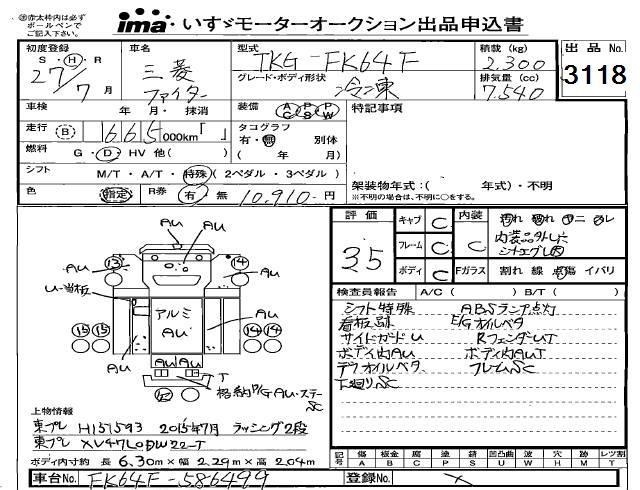 ㊟赤太枠内は必ず
ボールペンで
ご記入下さい。
ima いすゞモーターオークション出品申込書
初度登録 車名 型式 積載(kg) 出品No.
S・Ⓗ・R 三菱 TKG-FK64F 2.300 3118
27/7月 ファイター グレード・ボディ形状 冷凍 排気量(cc) 7.540
車検 年 月・ 抹消 装備 AC PS PW 特記事項
走行 B 665,000km「 」 タコグラフ 有・無 別体
燃料 G・D・HV 他( ) ( 年 月)
シフト M/T・A/T・特殊(2ペダル・3ペダル) 架装物年式:( 年式)・不明
色 指定 R券 有・無 10,910-円 ※不明の場合は、不明に○をする。
評価 キャブ C 内装 汚れ 破れ ヤニ ムレ
3.5 フレーム C C 内装品外し穴
ボディ C Fガラス 割れ 線 点傷 イバリ
検査員報告 A/C( ) B/T( )
シフト特殊 ABSランプ点灯
看板跡 E/Gオイルベタ
サイドガードU RフェンダーUT
ボディ内AU ボディ内AUT
デフオイルベタ フレームSC
下廻りSC
AU AU
13 14
AU AU
U-当板
アルミ
AU
15 15 14 14
AU AU
T
格納P/G AU・ステー
SC
上物情報
東プレ H151593 2015年7月 ラッシング2段
東プレ XV47LoDW22-T
ボディ内寸約 長 6.30m×幅 2.29m×高 2.04m
記号 傷 板金 腐 塗 錆 凹凸曲 波 穴 跡 レツ割
A B C P S U W H M T
車台No. FK64F-586499 登録No.